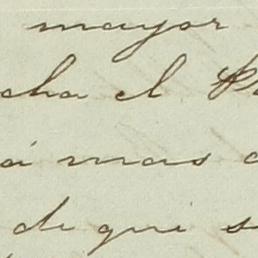 mayor
cha el P
á mas
de que s